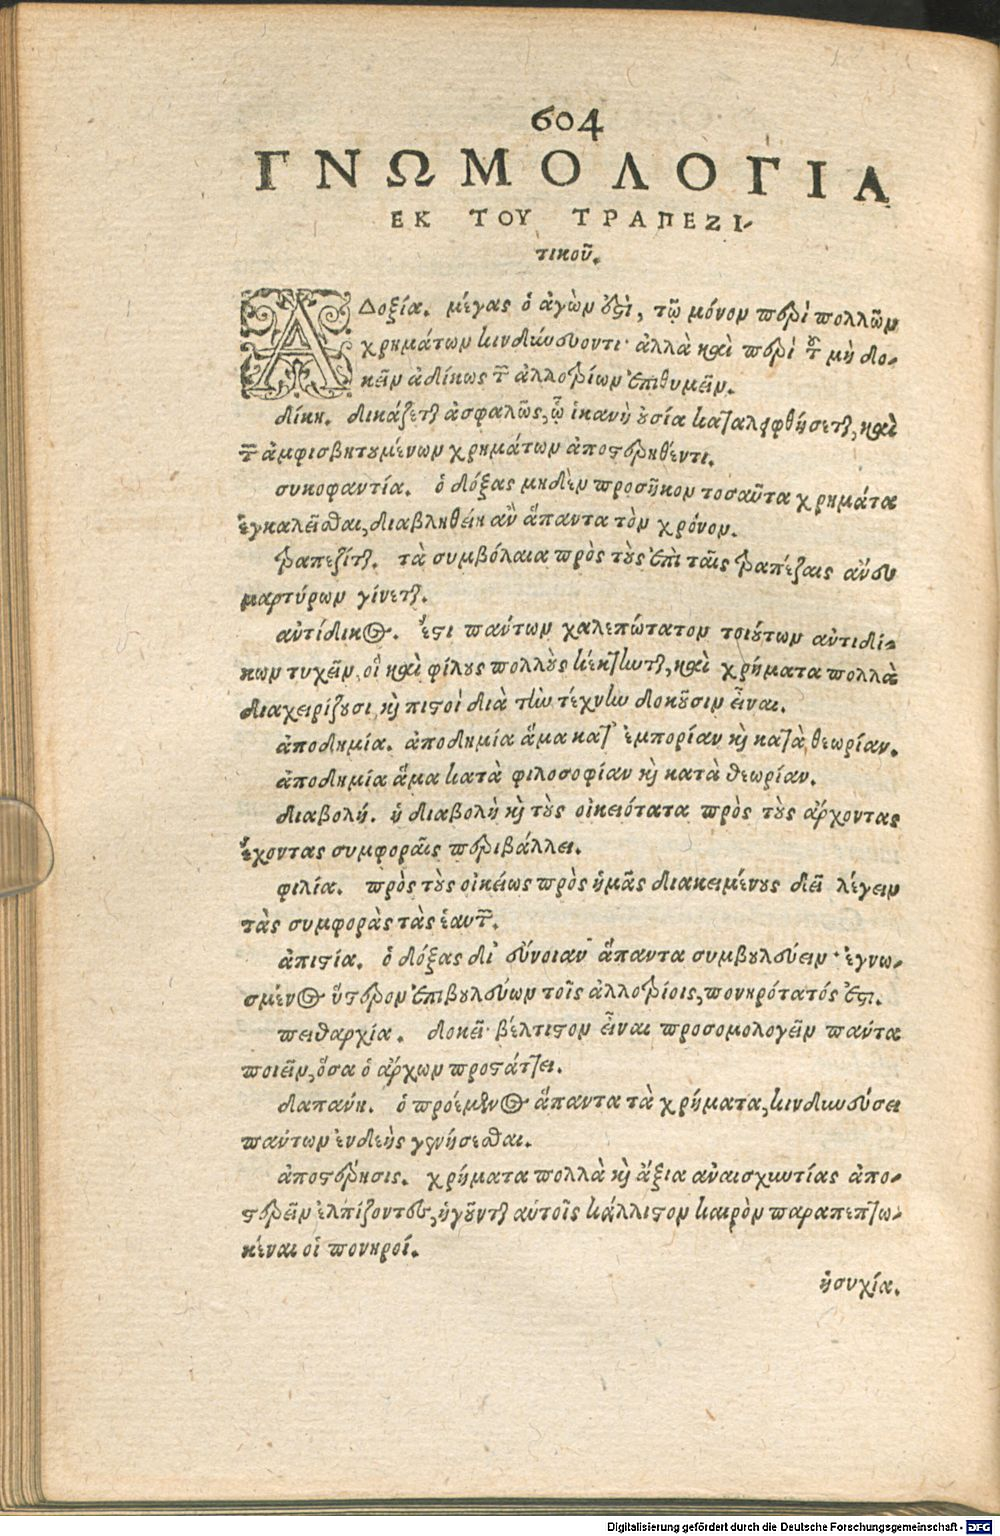 604
ΓΝΩΜΟΛΟΓΙΑ
ΕΚ ΤΟΥ ΤΡΑΠΕΖΙ-
τικοῦ.
ΑΔοξία. μέγας ὁ ἀγὼν ἐστὶ, τῷ μόνον περὶ πολλῶν
χρημάτων κινδυνεύοντι· ἀλλὰ καὶ περὶ τοῦ μὴ δο-
κεῖν ἀδίκως τῶν ἀλλοτρίων ἐπιθυμεῖν.
δίκη. δικάζεται ἀσφαλῶς, ᾧ ἱκανὴ οὐσία καταλειφθήσεται, καὶ
τῶν ἀμφισβητουμένων χρημάτων ἀποστερηθέντι.
συκοφαντία. ὁ δόξας μηδὲν προσῆκον τοσαῦτα χρημάτα
ἐγκαλεῖσθαι, διαβληθείη ἂν ἅπαντα τὸν χρόνον.
τραπεζίται. τὰ συμβόλαια πρὸς τοὺς ἐπὶ ταῖς τραπέζαις ἄνευ
μαρτύρων γίνεται.
ἀντίδικος. ἔστι πάντων χαλεπώτατον τοιούτων ἀντιδί-
κων τυχεῖν, οἳ καὶ φίλους πολλοὺς κέκτηνται, καὶ χρήματα πολλὰ
διαχειρίζουσι, καὶ πιστοὶ διὰ τὴν τέχνην δοκοῦσιν εἶναι.
ἀποδημία. ἀποδημία ἅμα κατ' ἐμπορίαν καὶ κατὰ θεωρίαν.
ἀποδημία ἅμα κατὰ φιλοσοφίαν καὶ κατὰ θεωρίαν.
διαβολή. ἡ διαβολὴ καὶ τοὺς οἰκειότατα πρὸς τοὺς ἄρχοντας
ἔχοντας συμφοραῖς περιβάλλει.
φιλία. πρὸς τοὺς οἰκείως πρὸς ἡμᾶς διακειμένους δεῖ λέγειν
τὰς συμφορὰς τὰς ἑαυτῶν.
ἀπιστία. ὁ δόξας δι' εὔνοιαν ἅπαντα συμβουλεύειν· ἐγνω-
σμένος ὕστερον ἐπιβουλεύων τοῖς ἀλλοτρίοις, πονηρότατός ἐστι.
πειθαρχία. δοκεῖ βέλτιστον εἶναι προσομολογεῖν πάντα
ποιεῖν, ὅσα ὁ ἄρχων προστάττει.
δαπάνη. ὁ προέμενος ἅπαντα τὰ χρήματα, κινδυνεύσει
πάντων ἐνδεὴς γενήσεσθαι.
ἀποστέρησις. χρήματα πολλὰ καὶ ἄξια ἀναισχυντίας ἀπο-
στερεῖν ἐλπίζοντες, ἡγοῦνται αὑτοῖς κάλλιστον καιρὸν παραπεπτω-
κέναι οἱ πονηροί.
ἡσυχία.
Digitalisierung gefördert durch die Deutsche Forschungsgemeinschaft - DFG